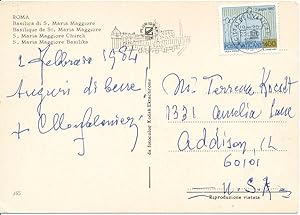 ROMA
Basilica di S. Maria Maggiore
Basilique de St. Maria Maggiore
S. Maria Maggiore Church
S. Maria Maggiore Basilika
2 Febbraio 1984
Auguri di bene
+
Mr. Terrence
1331 Amelia Lane
Addison, IL
60101
U.S.A.
da fotocolor Kodak Ektachrome
Riproduzione vietata